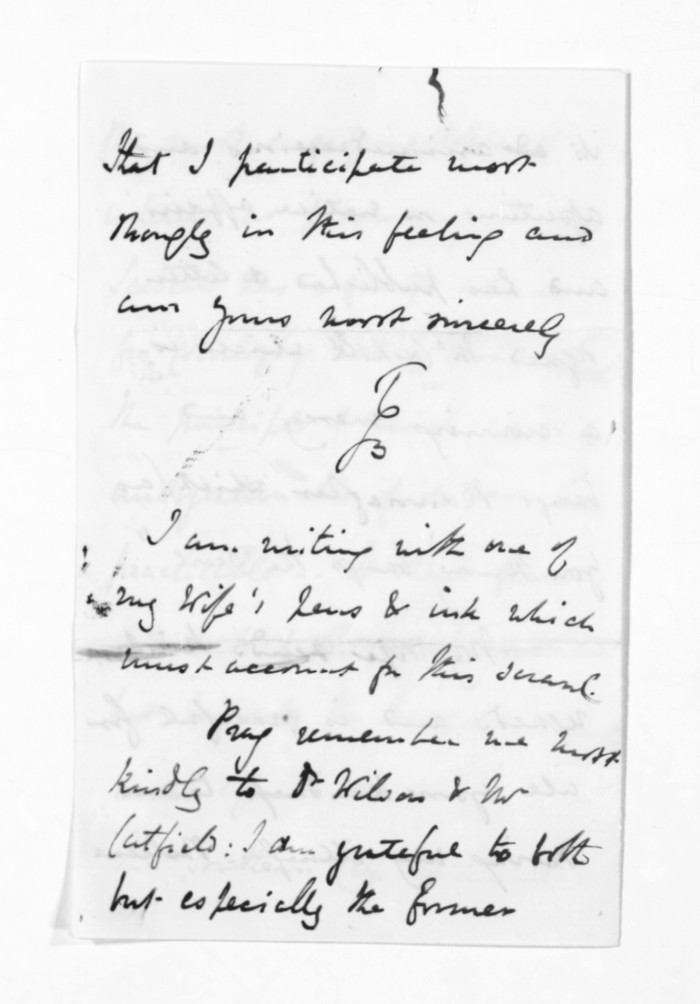 that I participate most
strongly in this feeling and
am yours most sincerely
I am writing with one of
my Wife's pens & ink which
must account for this scrawl.
Pray remember me most
kindly to Dr Wilson & Mr
: I am grateful to both
but especially the former